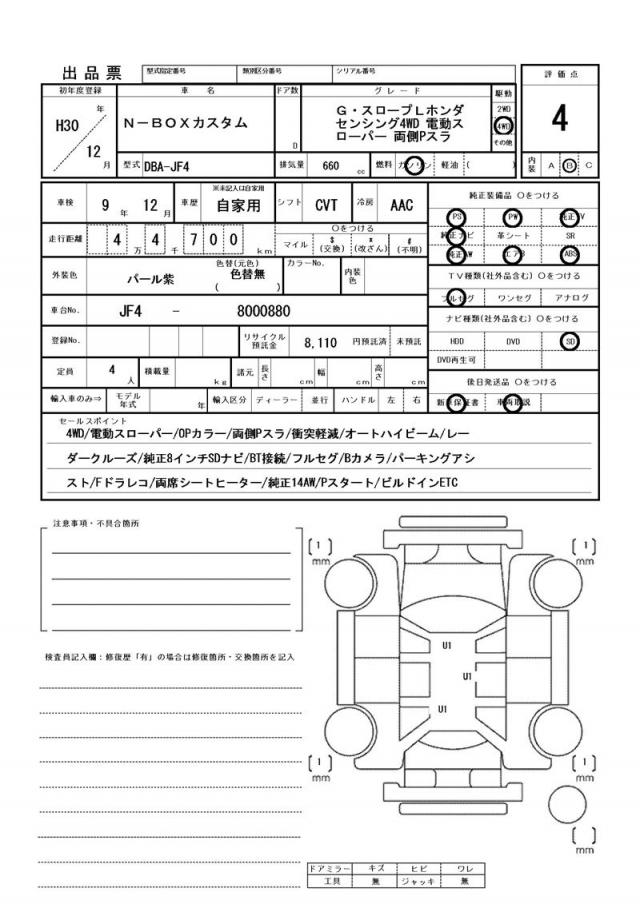 出品票 型式指定番号 類別区分番号 シリアル番号
評価点
4
内装 A B C
初年度登録 車名 ドア数 グレード 駆動
H30 年 12 月
N-BOXカスタム
D
G・スロープLホンダ
センシング4WD 電動ス
ローパー 両側Pスラ
2WD
4WD
その他
型式 DBA-JF4 排気量 660 cc 燃料 ガソリン 軽油 ( )
車検 9 年 12 月 車歴 ※未記入は自家用 自家用 シフト CVT 冷房 AAC
走行距離 4 万 4 千 7 0 0 km
○をつける
マイル $(交換) *(改ざん) #(不明)
外装色 パール紫 色替(元色) 色替無 ( ) カラーNo. 内装色
車台No. JF4 - 8000880
登録No. リサイクル預託金 8,110 円預託済 未預託
定員 4 人 積載量 kg 諸元 長さ cm 幅 cm 高さ cm
輸入車のみ⇒ モデル年式 年 輸入区分 ディーラー 並行 ハンドル 左 右
純正装備品 ○をつける
PS PW 純正TV
純正ナビ 革シート SR
純正AW エアB ABS
TV種類(社外品含む) ○をつける
フルセグ ワンセグ アナログ
ナビ種類(社外品含む) ○をつける
HDD DVD SD
DVD再生可
後日発送品 ○をつける
新車保証書 車両取説
セールスポイント
4WD/電動スローパー/OPカラー/両側Pスラ/衝突軽減/オートハイビーム/レー
ダークルーズ/純正8インチSDナビ/BT接続/フルセグ/Bカメラ/パーキングアシ
スト/Fドラレコ/両席シートヒーター/純正14AW/Pスタート/ビルドインETC
注意事項・不具合箇所
検査員記入欄：修復歴「有」の場合は修復箇所・交換箇所を記入
[ 1 ] mm
[ 1 ] mm
U1
U1
U1
[ 1 ] mm
[ 1 ] mm
[ ] mm
ドアミラー キズ ヒビ ワレ
工具 無 ジャッキ 無